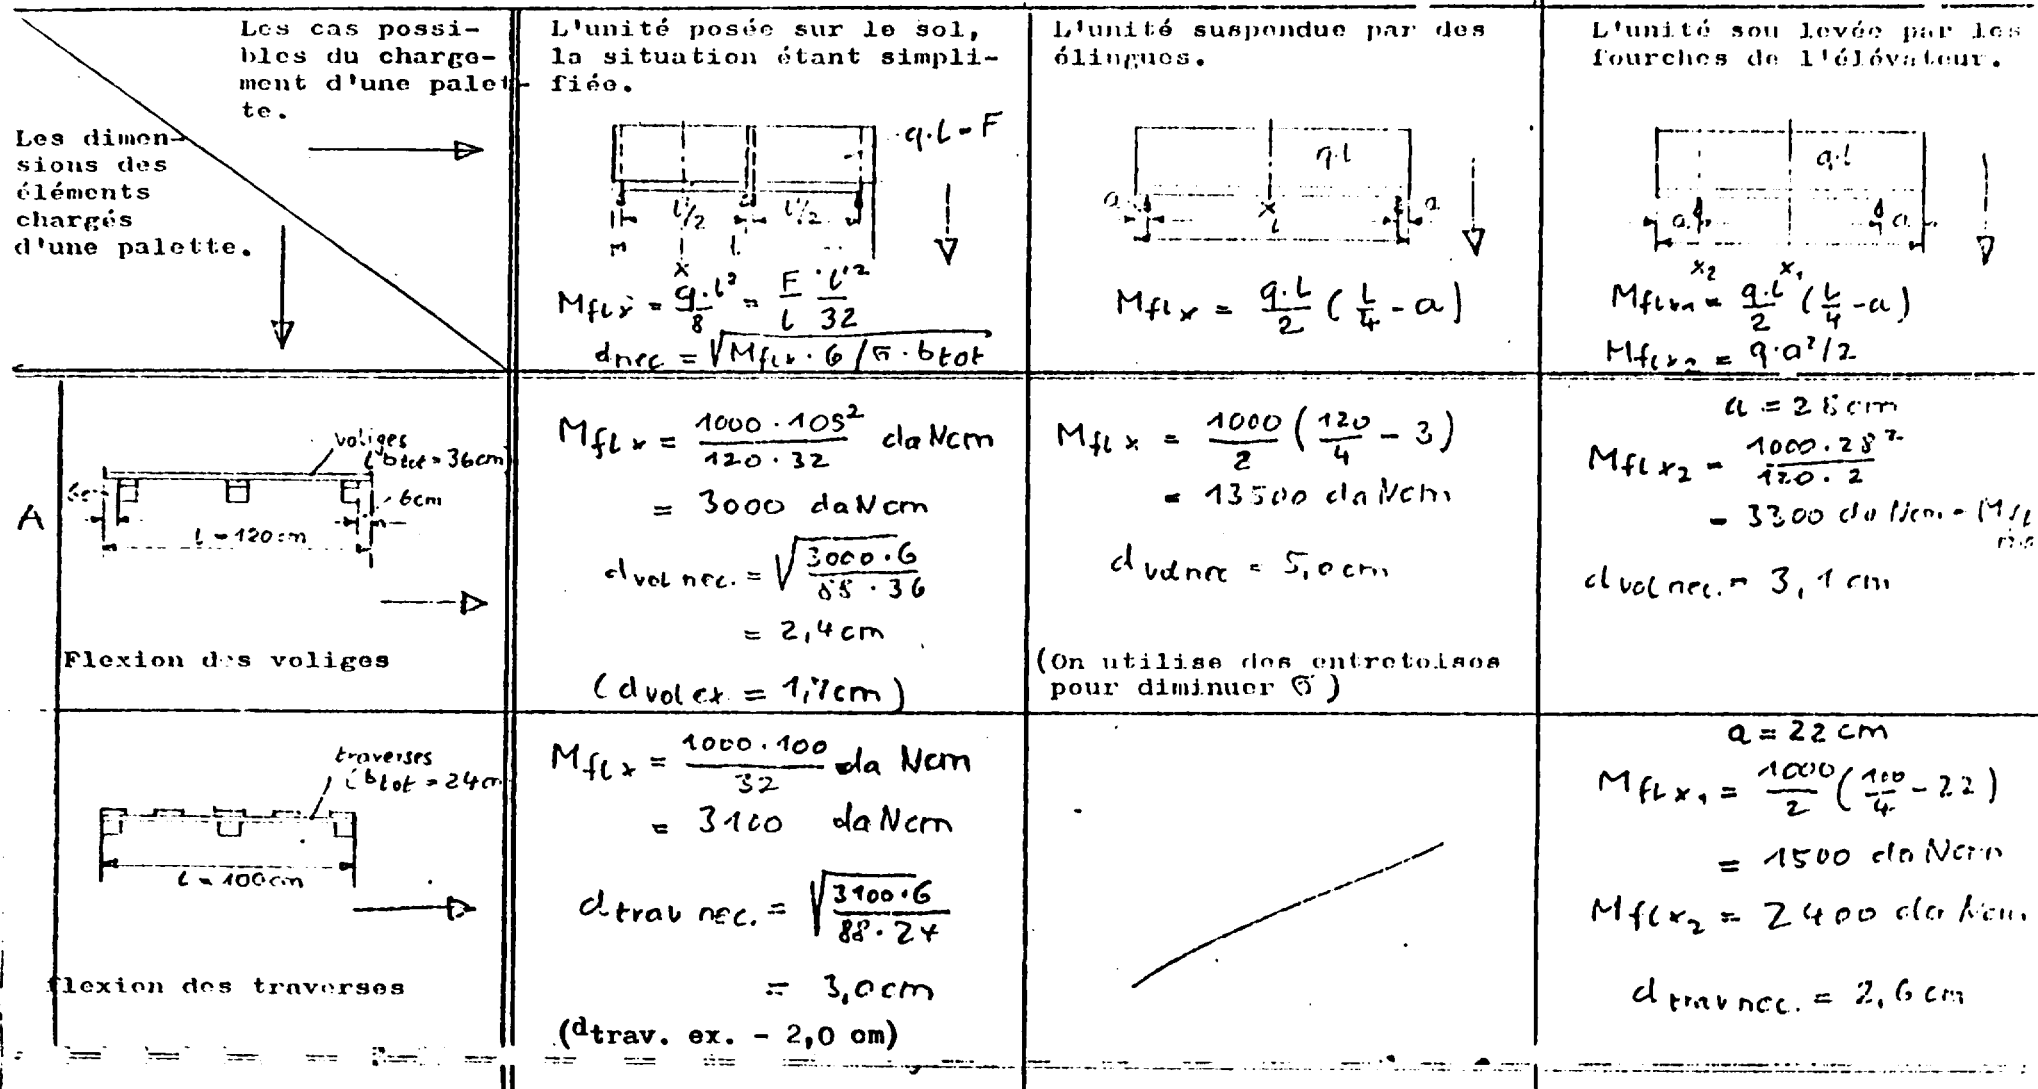 Les cas possi-
bles du charge-
ment d'une palet-
te.
Les dimen-
sions des
éléments
chargés
d'une palette.
L'unité posée sur le sol,
la situation étant simpli-
fiée.
q.l = F
l'/2 l'/2
l
x
M_flx = q.l'²/8 = F/l · l'²/32
d nec = √(M_flx · 6 / σ · b tot)
L'unité suspendue par des
élingues.
q.l
a a
x
l
M_flx = q.l/2 (l/4 - a)
L'unité sou levée par les
fourches de l'élévateur.
q.l
a a
x₂ x₁
M_flx₁ = q.l/2 (l/4 - a)
M_flx₂ = q.a²/2
A
voliges
b tot = 36cm
6cm
l = 120cm
Flexion des voliges
M_flx = 1000 . 108²/120 . 32 daNcm
= 3000 daNcm
d vol nec. = √(3000 . 6/88 . 36)
= 2,4cm
(d vol ex. = 1,7cm)
M_flx = 1000/2 (120/4 - 3)
= 13500 daNcm
d vol nec = 5,0cm
(On utilise des entretoises
pour diminuer σ)
a = 28cm
M_flx₂ = 1000 . 28²/120 . 2
= 3300 daNcm = M_fl
d vol nec. = 3,1cm
traverses
b tot = 24cm
l = 100cm
flexion des traverses
M_flx = 1000 . 100/32 da Ncm
= 3100 daNcm
d trav nec. = √(3100 . 6/88 . 24)
= 3,0cm
(d trav. ex. - 2,0 cm)
a = 22 cm
M_flx₁ = 1000/2 (100/4 - 22)
= 1500 daNcm
M_flx₂ = 2400 daNcm
d trav nec. = 2,6 cm